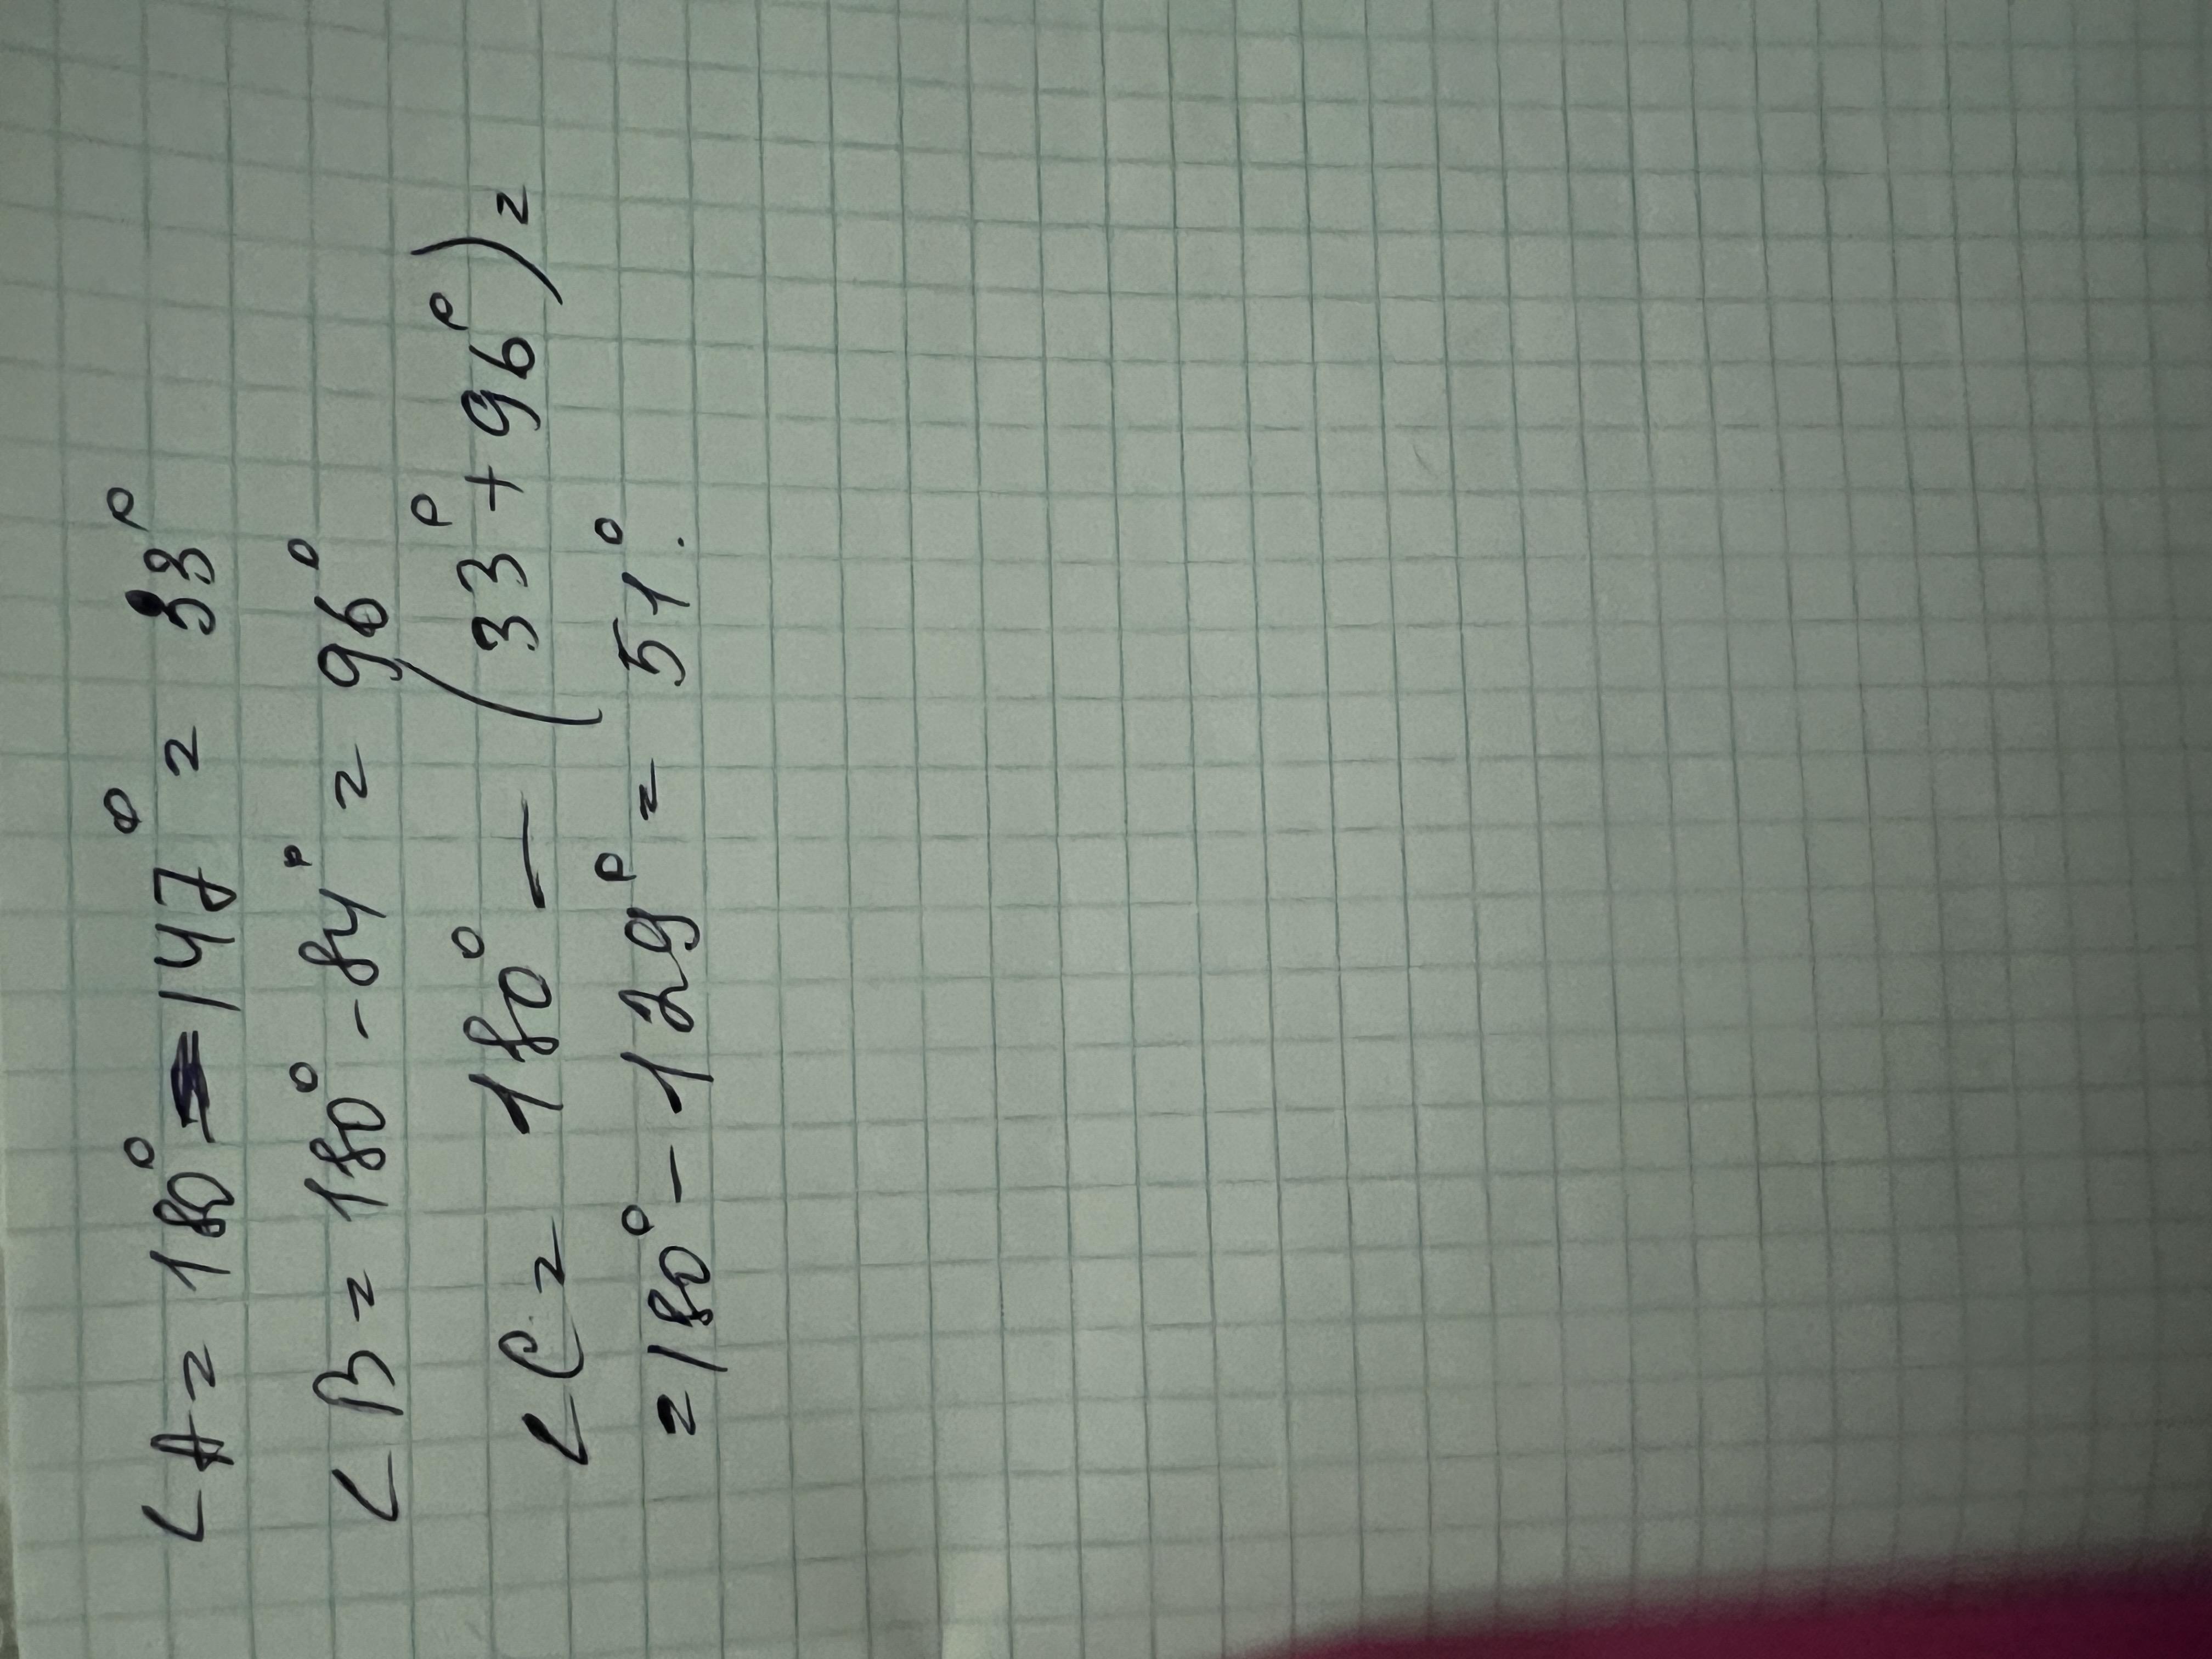 ∠A = 180° - 147° = 33°
∠B = 180° - 84° = 96°
∠C = 180° - (33° + 96°) =
= 180° - 129° = 51°.